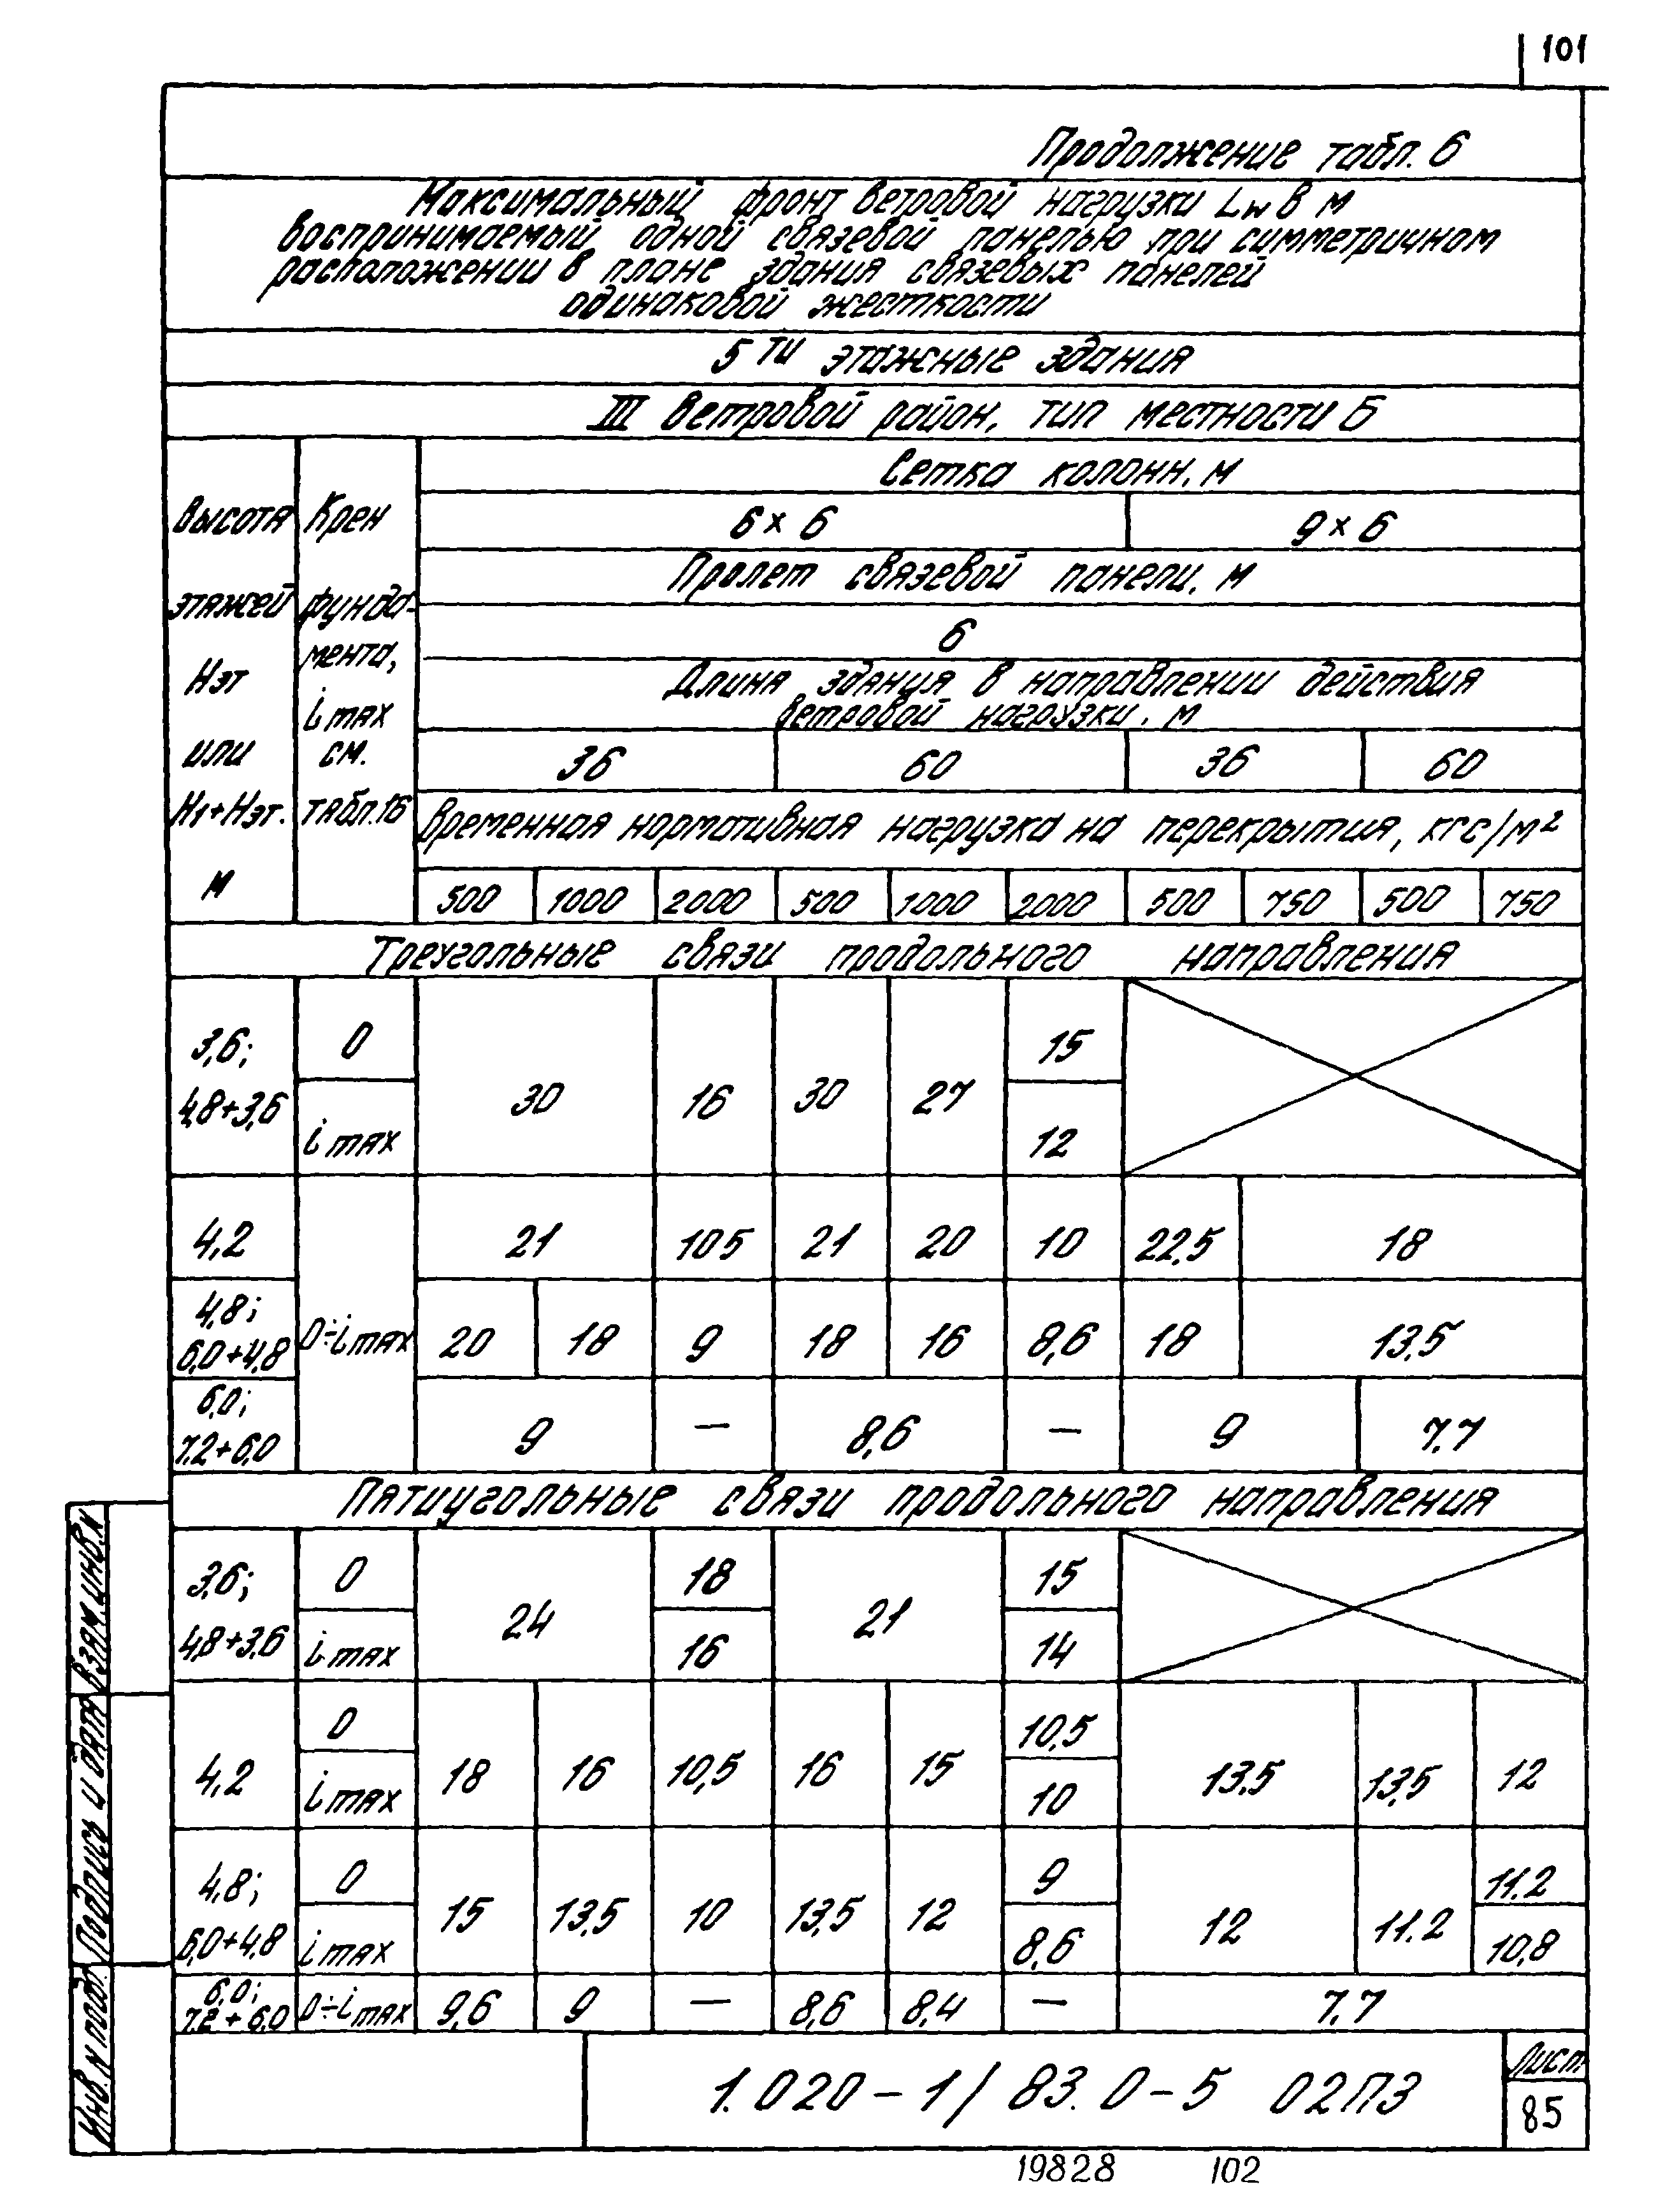 101
Продолжение табл. 6
Максимальный фронт ветровой нагрузки Lw в м
воспринимаемый одной связевой панелью при симметричном
расположении в плане здания связевых панелей
одинаковой жесткости
5ти этажные здания
III ветровой район, тип местности Б
Высота этажей Hэт или H1+Hэт. м
Крен фунда-
мента, i max см. табл.16
Сетка колонн, м
6 × 6 9 × 6
Пролет связевой панели, м
6
Длина здания в направлении действия
ветровой нагрузки, м
36 60 36 60
Временная нормативная нагрузка на перекрытия, кгс/м²
500 1000 2000 500 1000 2000 500 750 500 750
Треугольные связи продольного направления
3,6; 0 15
4,8+3,6 30 16 30 27
i max 12
4,2 21 105 21 20 10 22,5 18
4,8;
6,0+4,8 0÷i max 20 18 9 18 16 8,6 18 13,5
6,0;
7.2+6,0 9 — 8,6 — 9 7.7
Пятиугольные связи продольного направления
3,6; 0 18 15
24 21
4,8+3,6 i max 16 14
0 10,5
4,2 18 16 10,5 16 15 13.5 13,5 12
i max 10
4,8; 0 9 11.2
15 13,5 10 13,5 12 12 11.2
6,0+4,8 i max 8,6 10,8
6,0;
7.2 + 6,0 0÷i max 9,6 9 — 8,6 8,4 — 7.7
Взам. инв. N
Подпись и дата
Инв. N подл.
1.020-1/83. 0-5 02ПЗ
Лист
85
19828 102